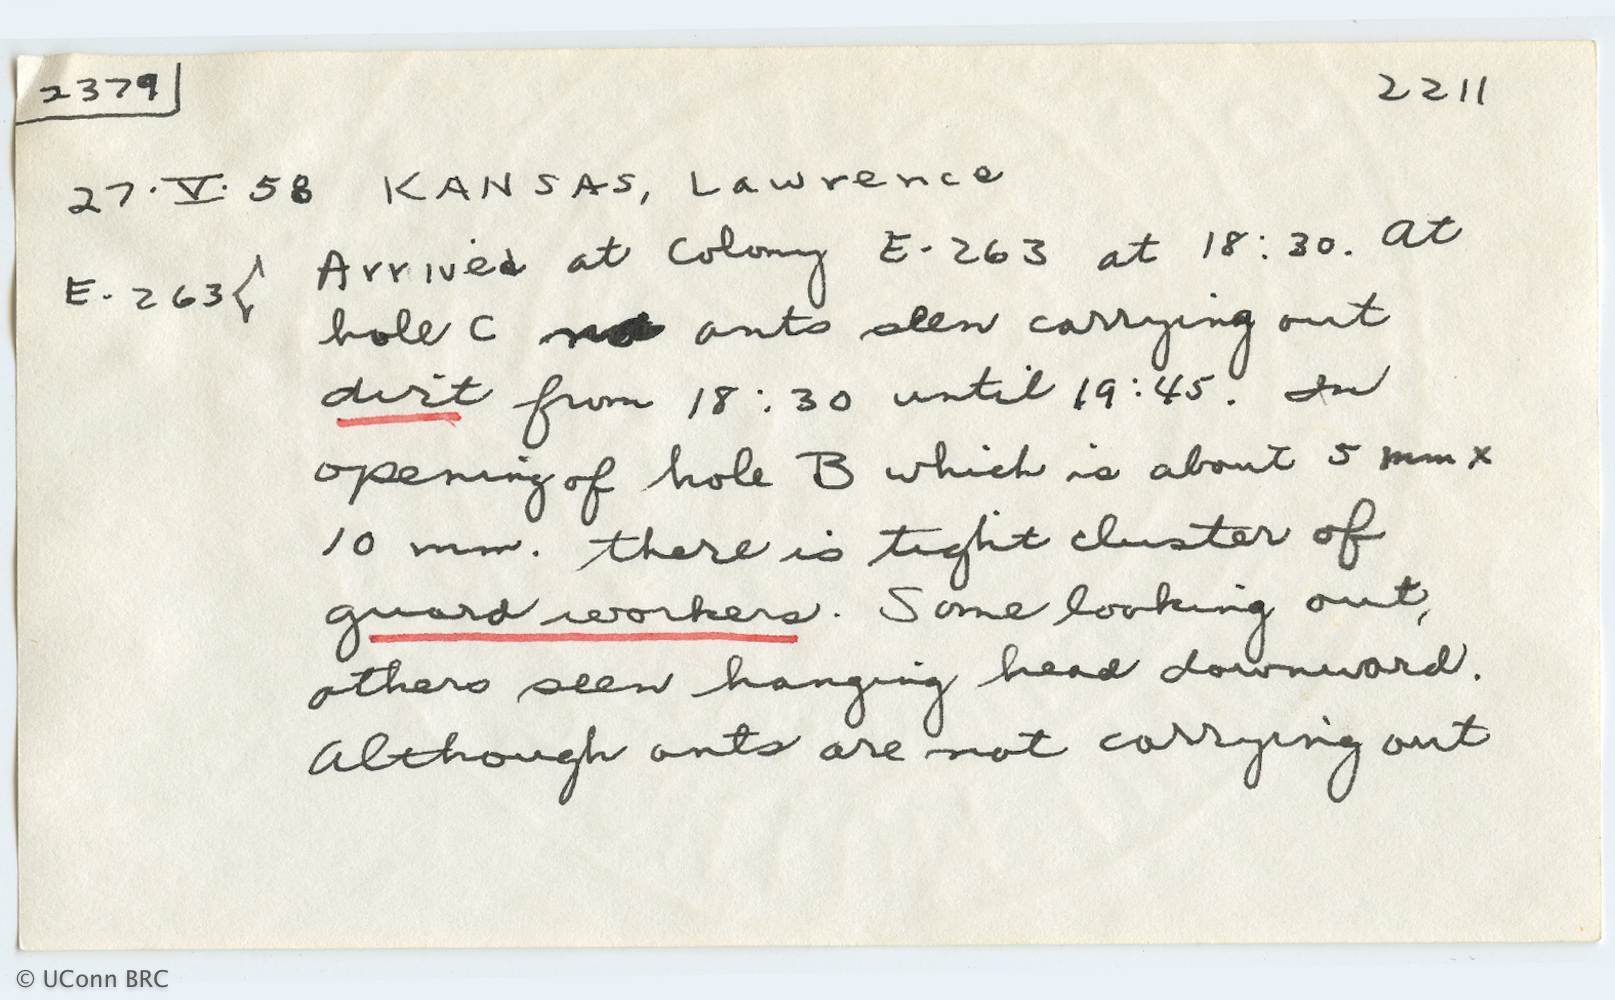 2379
2211
27·V·58 KANSAS, Lawrence
E-263{ Arrived at Colony E-263 at 18:30. At
hole C no ants seen carrying out
dirt from 18:30 until 19:45. In
opening of hole B which is about 5 mm x
10 mm. there is tight cluster of
guard workers. Some looking out,
others seen hanging head downward.
Although ants are not carrying out
© UConn BRC